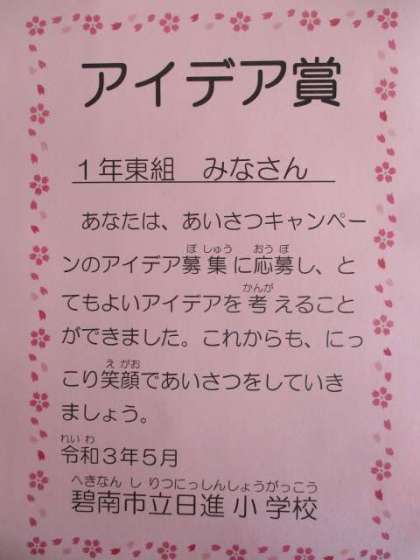 アイデア賞
１年東組　みなさん
あなたは、あいさつキャンペー
ぼしゅう おうぼ
ンのアイデア募集に応募し、と
かんが
てもよいアイデアを考えること
ができました。これからも、にっ
えがお
こり笑顔であいさつをしていき
ましょう。
れいわ
令和３年５月
へきなんしりつにっしんしょうがっこう
碧南市立日進小学校